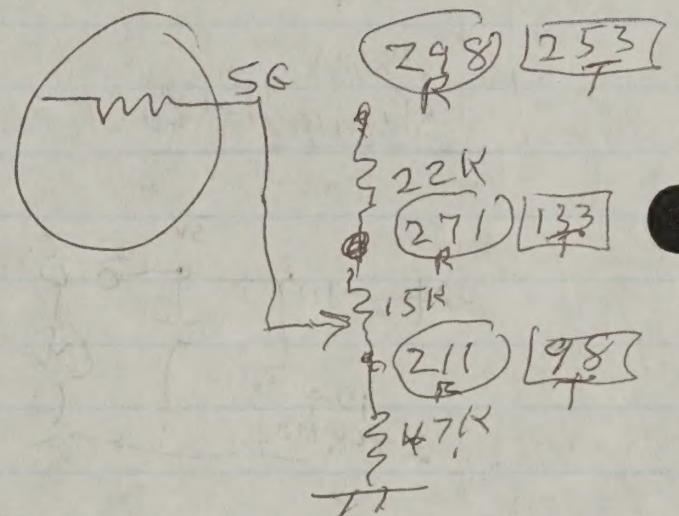 SG 298 253
R T
22K
271 133
R T
15K
211 98
R T
47K